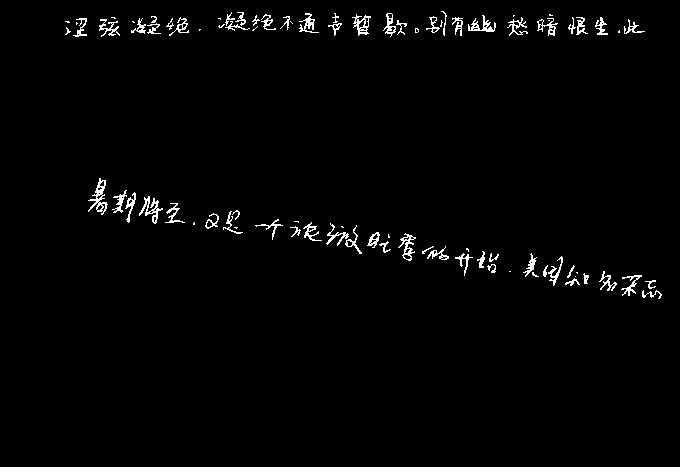 涩弦凝绝，凝绝不通声暂歇。别有幽愁暗恨生，此
暑期将至，又是一个旅游旺季的开始，美国知名杂志